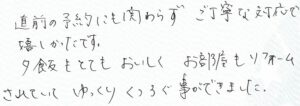 直前の予約にも関わらず ご丁寧な対応で
嬉しかたです。
夕飯もとても おいしく お部屋もリフォーム
されていて ゆっくり くつろぐ事ができました。